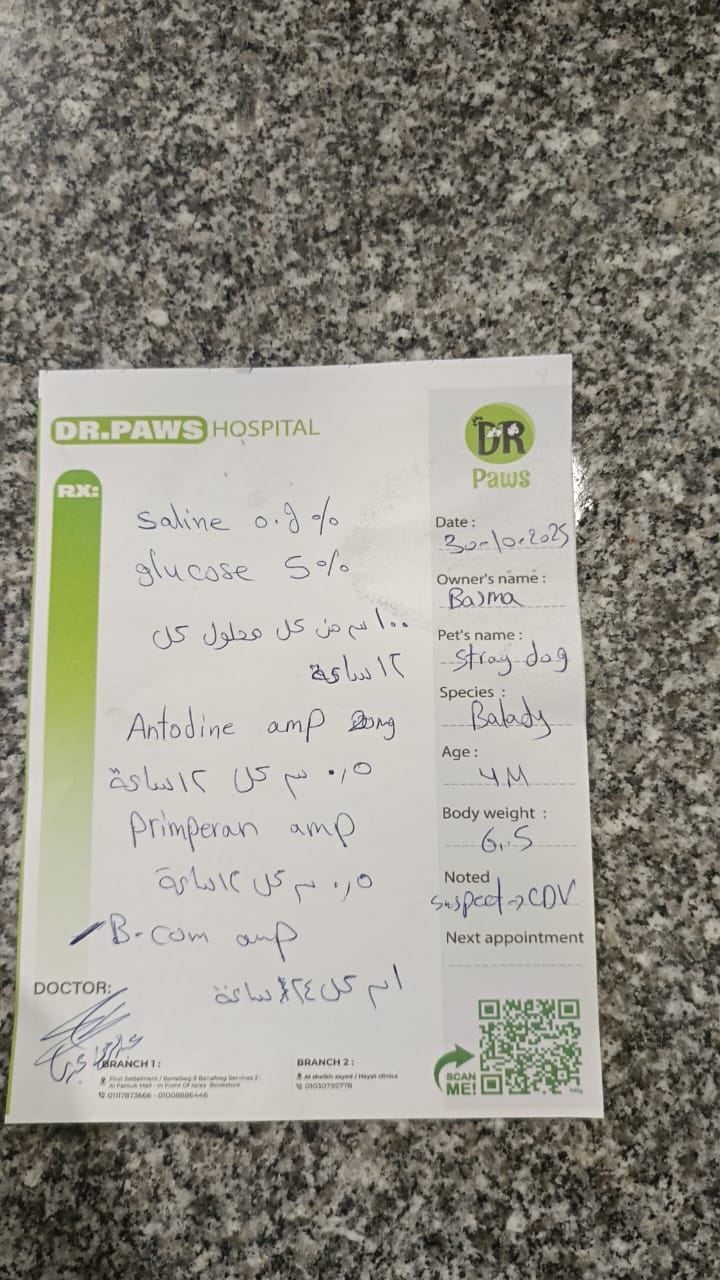 DR.PAWS HOSPITAL
RX:
Saline 0.9 %
glucose 5 %
١٠٠ سم من كل محلول كل
١٢ ساعة
Antodine amp 20mg
٠,٥ سم كل ١٢ ساعة
Primperan amp
٠,٥ سم كل ١٢ ساعة
B-com amp
١ سم كل ٢٤ ساعة
DOCTOR:
DR
Paws
Date :
30-10-2025
Owner's name :
Basma
Pet's name :
Stray dog
Species :
Balady
Age :
4M
Body weight :
6.5
Noted
suspect → CDV
Next appointment
SCAN
ME!
BRANCH 1 :
First Settelment / Banafseg 8 Banafseg Services 2 :
Al Farouk Mall - In Front Of Iqraa Bookstore
01117873666 - 01008886446
BRANCH 2 :
Al sheikh zayed / Hayat clinics
01030795778